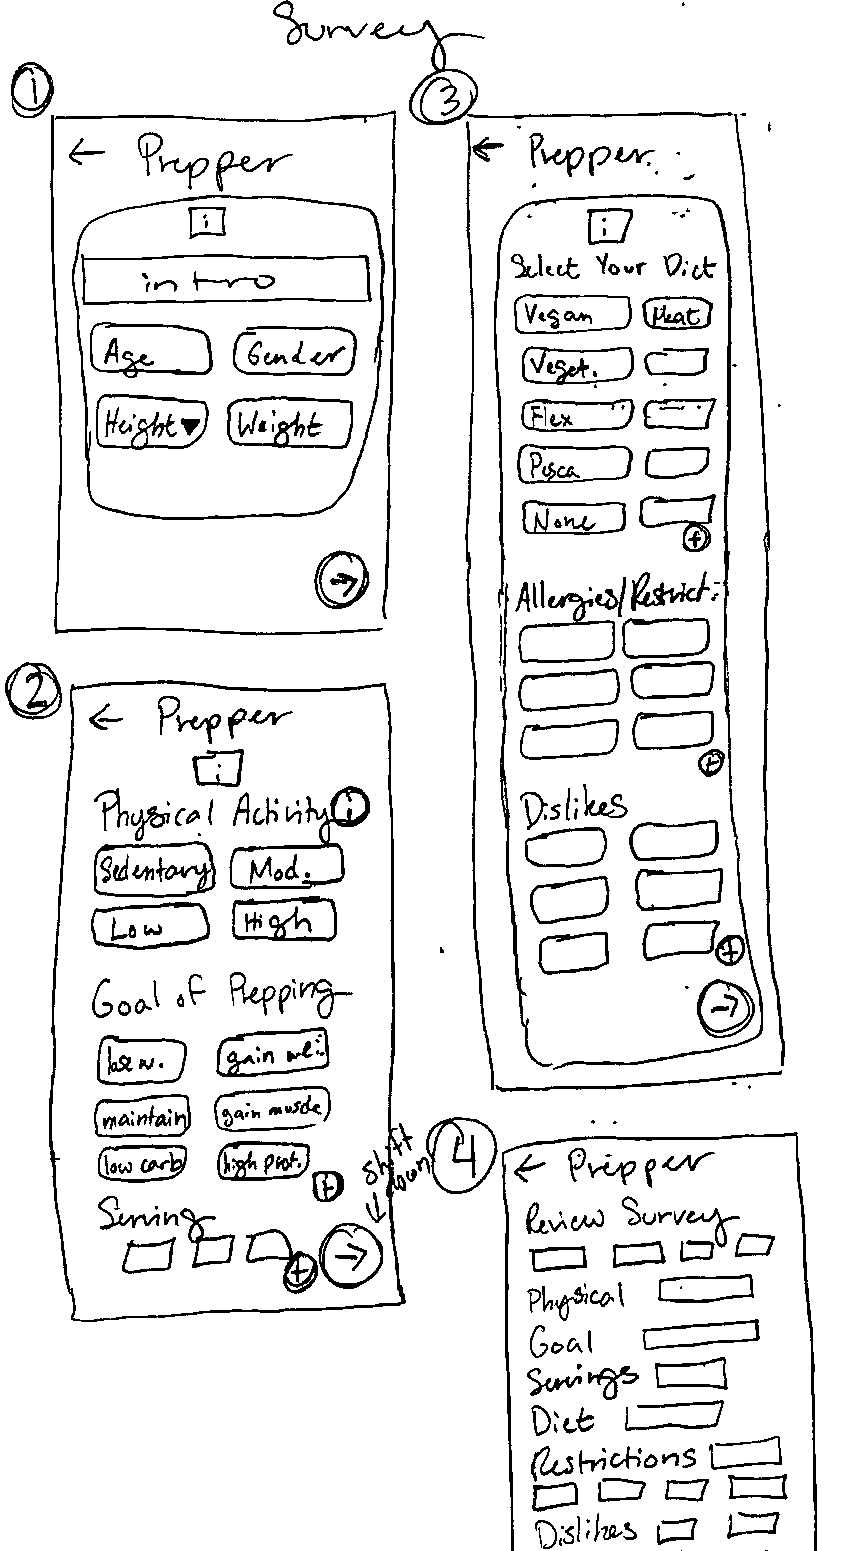 Survey
1
← Prepper
i
intro
Age Gender
Height▼ Weight
→
2
← Prepper
i
Physical Activity i
Sedentary Mod.
Low High
Goal of Prepping
lose w. gain wei.
maintain gain muscle
low carb high prot.
+
Serving
+ →
shift down
3
← Prepper
i
Select Your Diet
Vegan Meat
Veget.
Flex
Pesca
None
+
Allergies/Restrict.
+
Dislikes
+
→
4
← Prepper
Review Survey
Physical
Goal
Servings
Diet
Restrictions
Dislikes